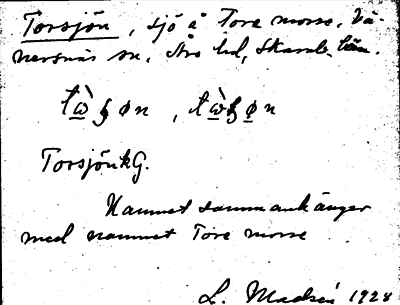 Torsjön, sjö å Tore mosse, Vä-
nersnäs sn, Åse hd, Skarab. län.
tὼ̲ʂøn, tὼ̲ʂø̲n
Torsjön kG.
Namnet sammanhänger
med namnet Tore mosse
L. 1928